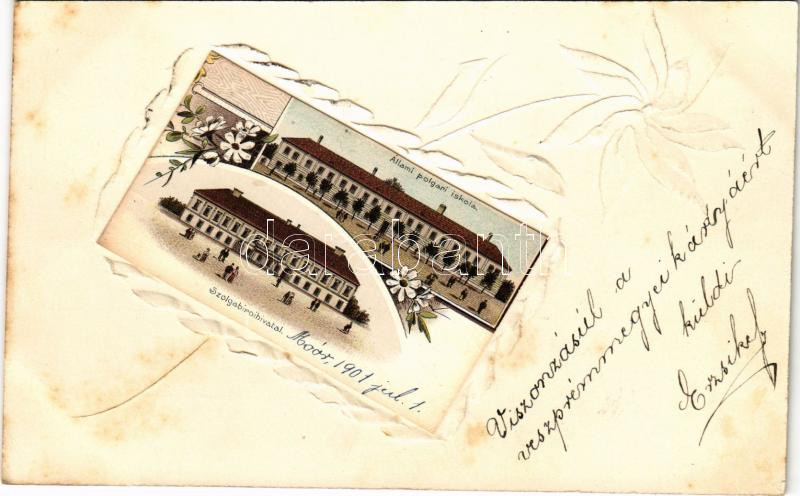 Állami polgári iskola.
Szolgabiróihivatal.
Moór, 1901 jul. 1.
Viszonzásúl a
veszprémmegyei kártyáért
küldi
Erzsike
darabanth